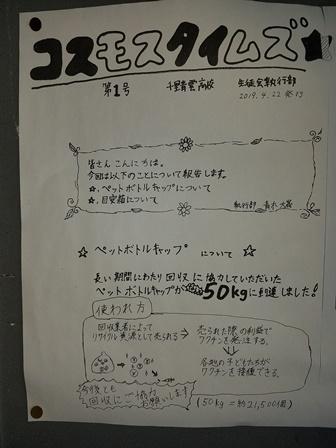 コスモスタイムズ
第1号 千里青雲高校 生徒会執行部
2019.4.22 発行
皆さん こんにちは。
今回は以下のことについて報告します。
☆.ペットボトルキャップについて
☆.目安箱について
執行部
☆ ペットボトルキャップ について ☆
長い期間にわたり 回収 に 協力していただいた
ペットボトルキャップが 50kgに到達しました!
使われ方
回収業者によって
リサイクル資源として売られる → 売られた際の利益で
ワクチンを発注する。
各地の子どもたちが
ワクチンを接種できる。
今後とも
回収にご協力
お願いします
(50kg = 約21,500個)